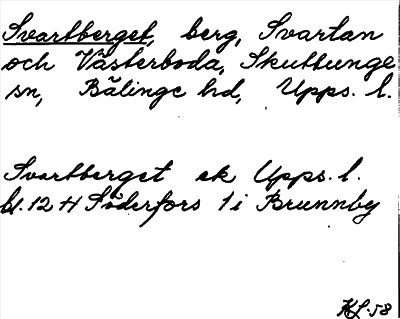 Svartberget, berg, Svartan
och Västerboda, Skuttunge
sn, Bälinge hd, Upps. l.
Svartberget ek Upps. l.
bl. 12 H Söderfors 1 i Brunnby
KL-58